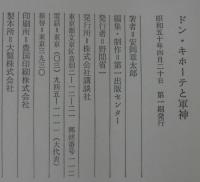 ドン・キホーテと軍神
昭和五十年四月二十日　第一刷発行
著者＝安岡章太郎
編集・制作＝第一出版センター
発行者＝野間省一
発行所＝株式会社講談社
東京都文京区音羽二―一二―二一　郵便番号一一二
電話＝東京（〇三）九四五―一一一一（大代表）
振替＝東京三九三〇
印刷所＝豊国印刷株式会社
製本所＝大製株式会社